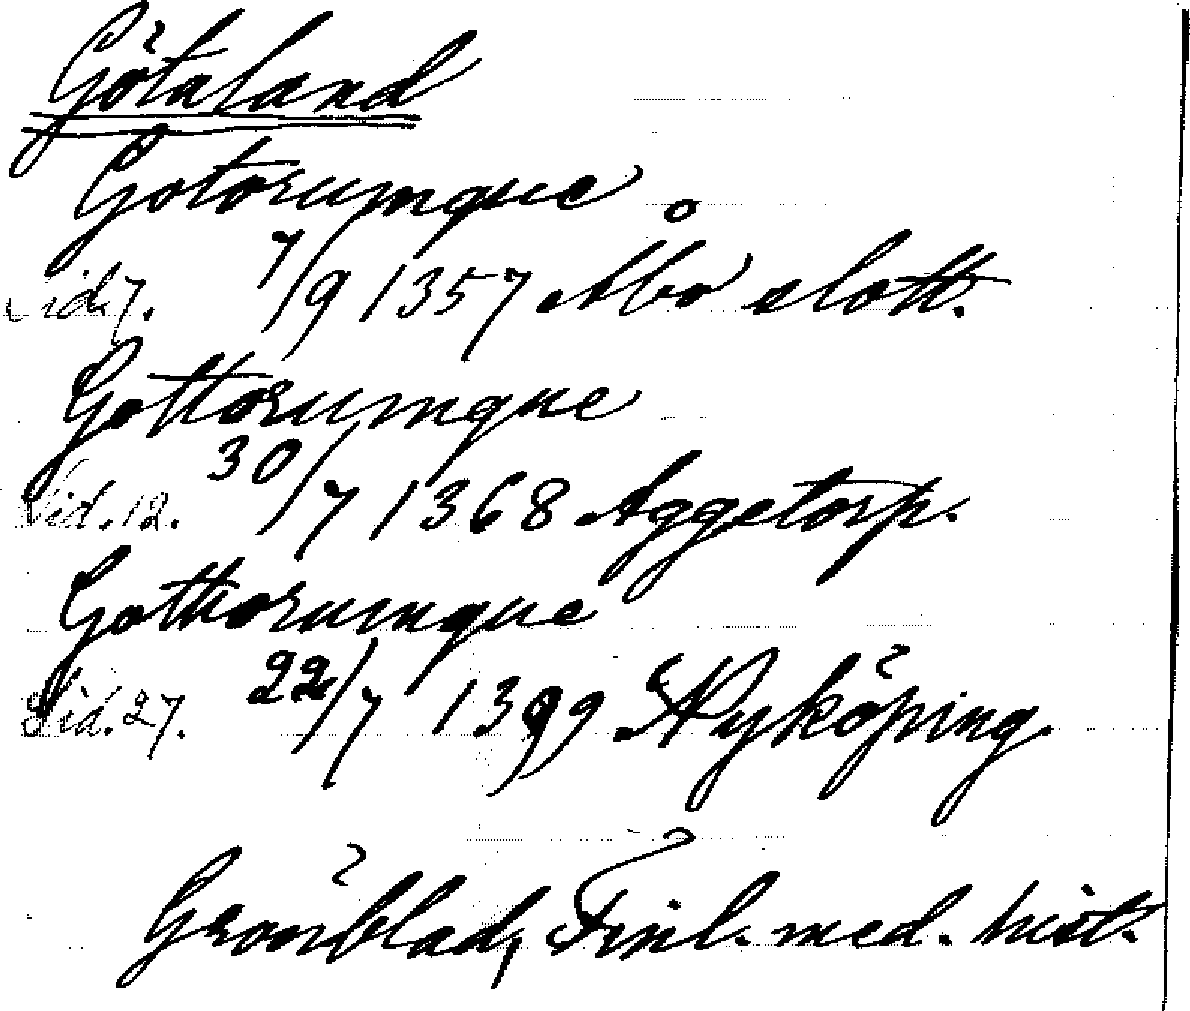 Götaland
Gotorumque
sid 7. 7/9 1357 Åbo slott.
Gottorumque
Sid. 12. 30/7 1368 Aggetorp.
Gothorumque
Sid. 27. 22/7 1399 Nyköping.
Grönblad, Finl. med. hist.